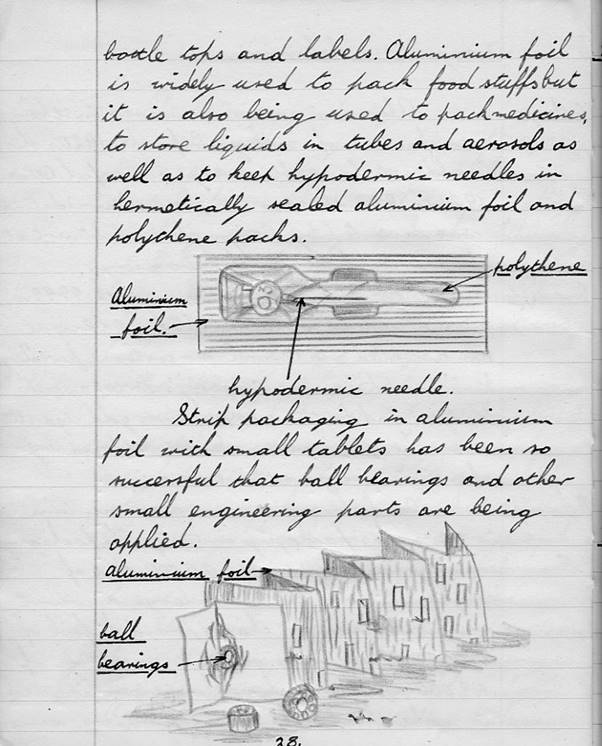 bottle tops and labels. Aluminium foil
is widely used to pack food stuffs but
it is also being used to pack medicines,
to store liquids in tubes and aerosols as
well as to keep hypodermic needles in
hermetically sealed aluminium foil and
polythene packs.
polythene
Aluminium
foil.
hypodermic needle.
Strip packaging in aluminium
foil with small tablets has been so
successful that ball bearings and other
small engineering parts are being
applied.
aluminium foil
ball
bearings
28.